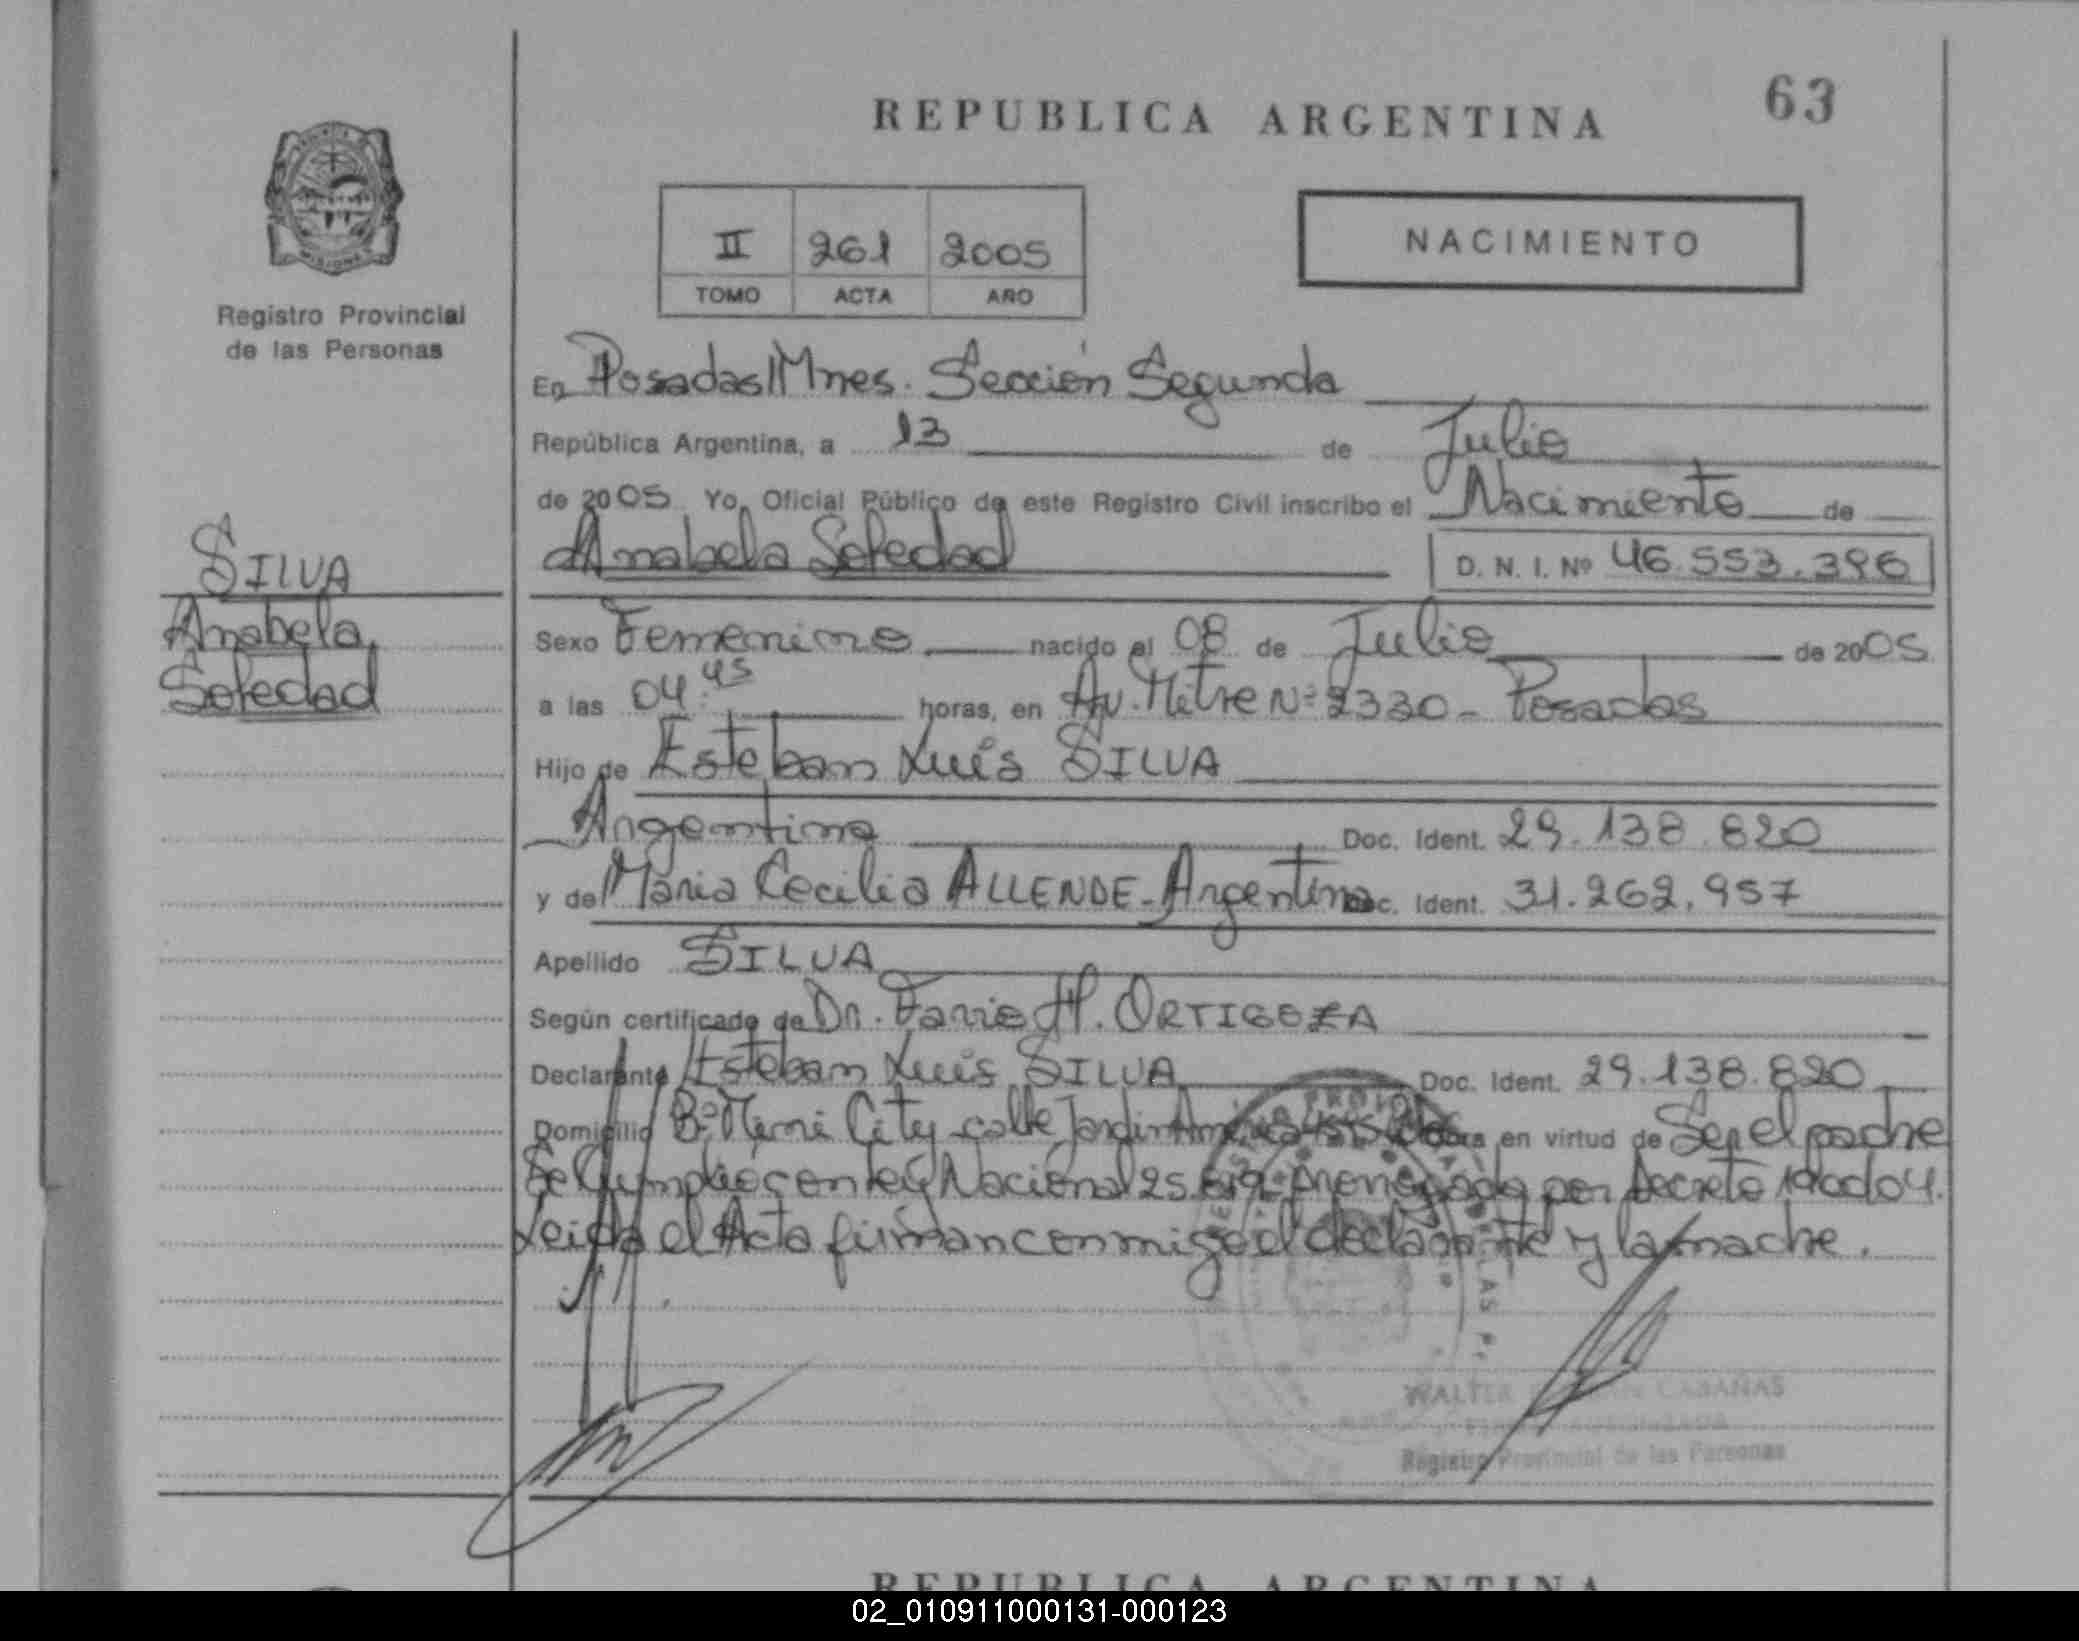 REPUBLICA ARGENTINA
63
II 261 2005
TOMO ACTA AÑO
NACIMIENTO
MISIONES
Registro Provincial
de las Personas
En Posadas/Mnes. Sección Segunda
República Argentina, a 13 de Julio
de 2005 Yo, Oficial Público de este Registro Civil inscribo el Nacimiento de
Anabela Soledad D. N. I. Nº 46.553.396
SILVA
Anabela
Soledad
Sexo Femenino nacido el 08 de Julio de 2005
a las 04:45 horas, en Av. Mitre Nº 2330 - Posadas
Hijo de Esteban Luis SILVA
Argentino Doc. Ident. 29.138.820
y de Maria Cecilia ALLENDE - Argentina Doc. Ident. 31.262.957
Apellido SILVA
Según certificado de Dr. H. ORTIGOZA
Declarante Esteban Luis SILVA Doc. Ident. 29.138.820
Domicilio Bº Mini City calle Jardin América en virtud de Ser el padre
Se Cumplio con ley Nacional 25. por Decreto
Leida el Acta firman conmigo el declarante y la madre.
WALTER CABAÑAS
Registro Provincial de las Personas
REPUBLICA ARGENTINA
02_010911000131-000123